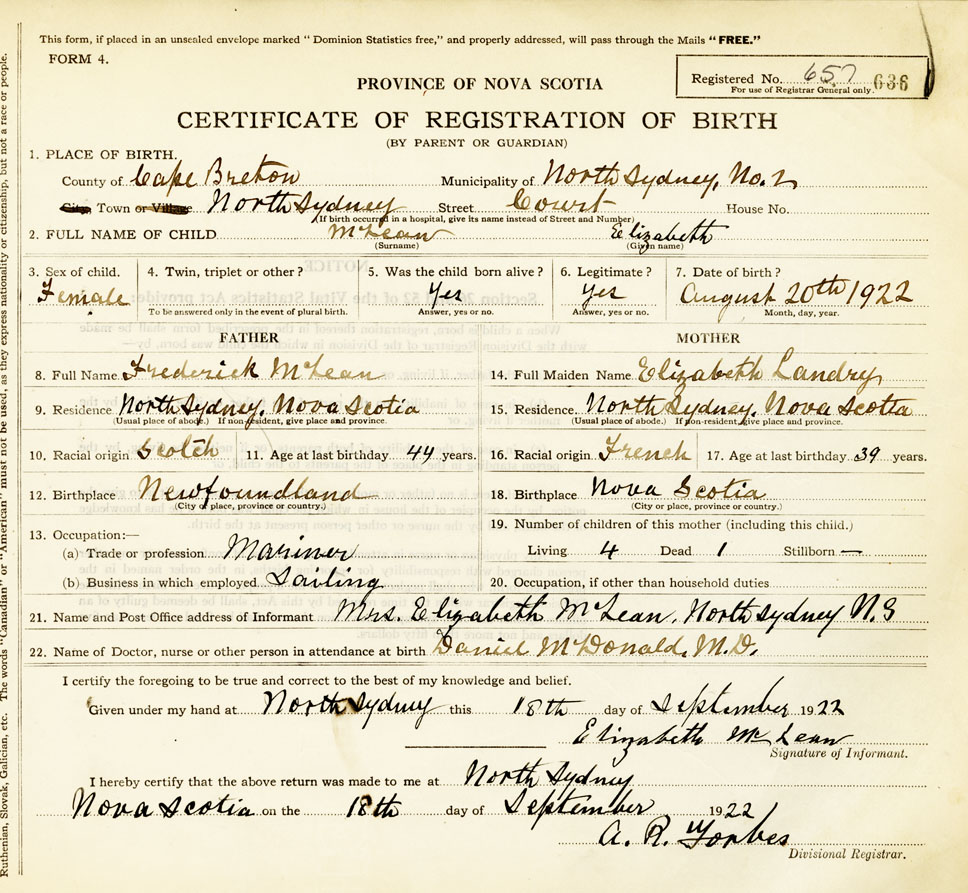 This form, if placed in an unsealed envelope marked "Dominion Statistics free," and properly addressed, will pass through the Mails "FREE."
FORM 4.
Registered No. 657 636
For use of Registrar General only.
PROVINCE OF NOVA SCOTIA
CERTIFICATE OF REGISTRATION OF BIRTH
(BY PARENT OR GUARDIAN)
1. PLACE OF BIRTH.
County of Cape Breton Municipality of North Sydney, No. 2
City, Town or Village North Sydney Street Court House No.
(If birth occurred in a hospital, give its name instead of Street and Number)
2. FULL NAME OF CHILD McLean Elizabeth
(Surname) (Given name)
3. Sex of child. 4. Twin, triplet or other? 5. Was the child born alive? 6. Legitimate? 7. Date of birth?
Female Yes Yes August 20th 1922
To be answered only in the event of plural birth. Answer, yes or no. Answer, yes or no. Month, day, year.
FATHER MOTHER
8. Full Name Frederick McLean 14. Full Maiden Name Elizabeth Landry
9. Residence North Sydney, Nova Scotia 15. Residence North Sydney, Nova Scotia
(Usual place of abode.) If non-resident, give place and province. (Usual place of abode.) If non-resident, give place and province.
10. Racial origin Scotch 11. Age at last birthday 44 years. 16. Racial origin French 17. Age at last birthday 39 years.
12. Birthplace Newfoundland 18. Birthplace Nova Scotia
(City or place, province or country.) (City or place, province or country.)
13. Occupation:— 19. Number of children of this mother (including this child.)
(a) Trade or profession Mariner Living 4 Dead 1 Stillborn —
(b) Business in which employed Sailing 20. Occupation, if other than household duties
21. Name and Post Office address of Informant Mrs. Elizabeth McLean, North Sydney N.S
22. Name of Doctor, nurse or other person in attendance at birth Daniel McDonald, M.D.
I certify the foregoing to be true and correct to the best of my knowledge and belief.
Given under my hand at North Sydney this 18th day of September 1922
Elizabeth McLean
Signature of Informant.
I hereby certify that the above return was made to me at North Sydney
Nova Scotia on the 18th day of September 1922
A. R. Forbes
Divisional Registrar.
Ruthenian, Slovak, Galician, etc. The words "Canadian" or "American" must not be used, as they express nationality or citizenship, but not a race or people.